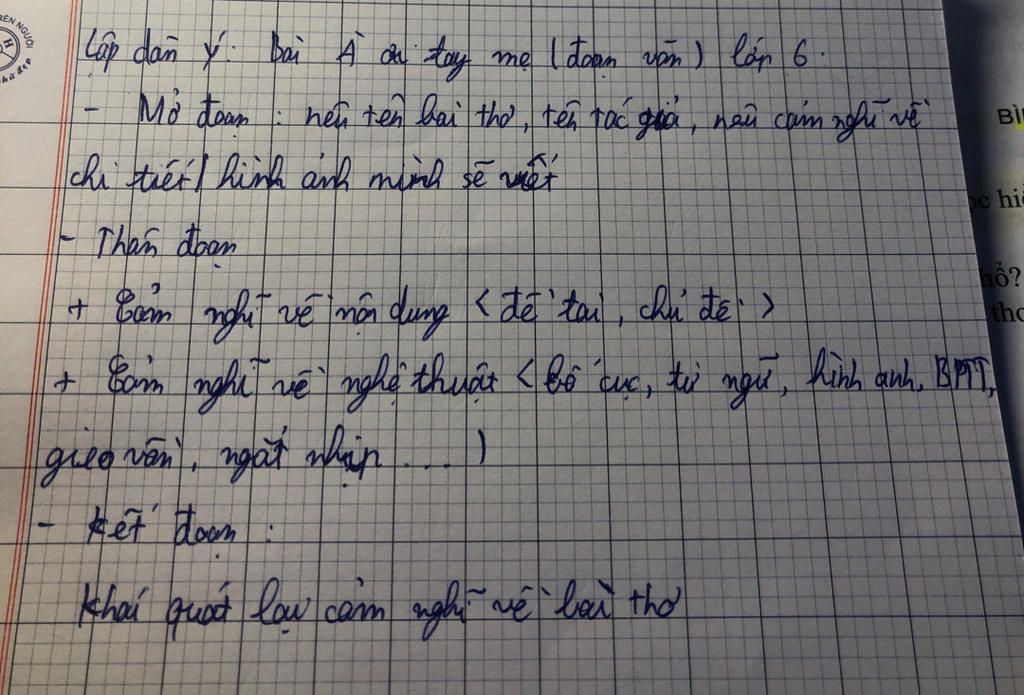 Lập dàn ý: Bài À ơi tay mẹ (đoạn văn) lớp 6.
- Mở đoạn : nêu tên bài thơ, tên tác giả, nêu cảm nghĩ về
chi tiết/ hình ảnh mình sẽ viết
- Thân đoạn
+ Cảm nghĩ về nội dung < đề tài, chủ đề >
+ Cảm nghĩ về nghệ thuật < bố cục, từ ngữ, hình ảnh, BPTT,
gieo vần, ngắt nhịp .... )
- Kết đoạn :
Khái quát lại cảm nghĩ về bài thơ